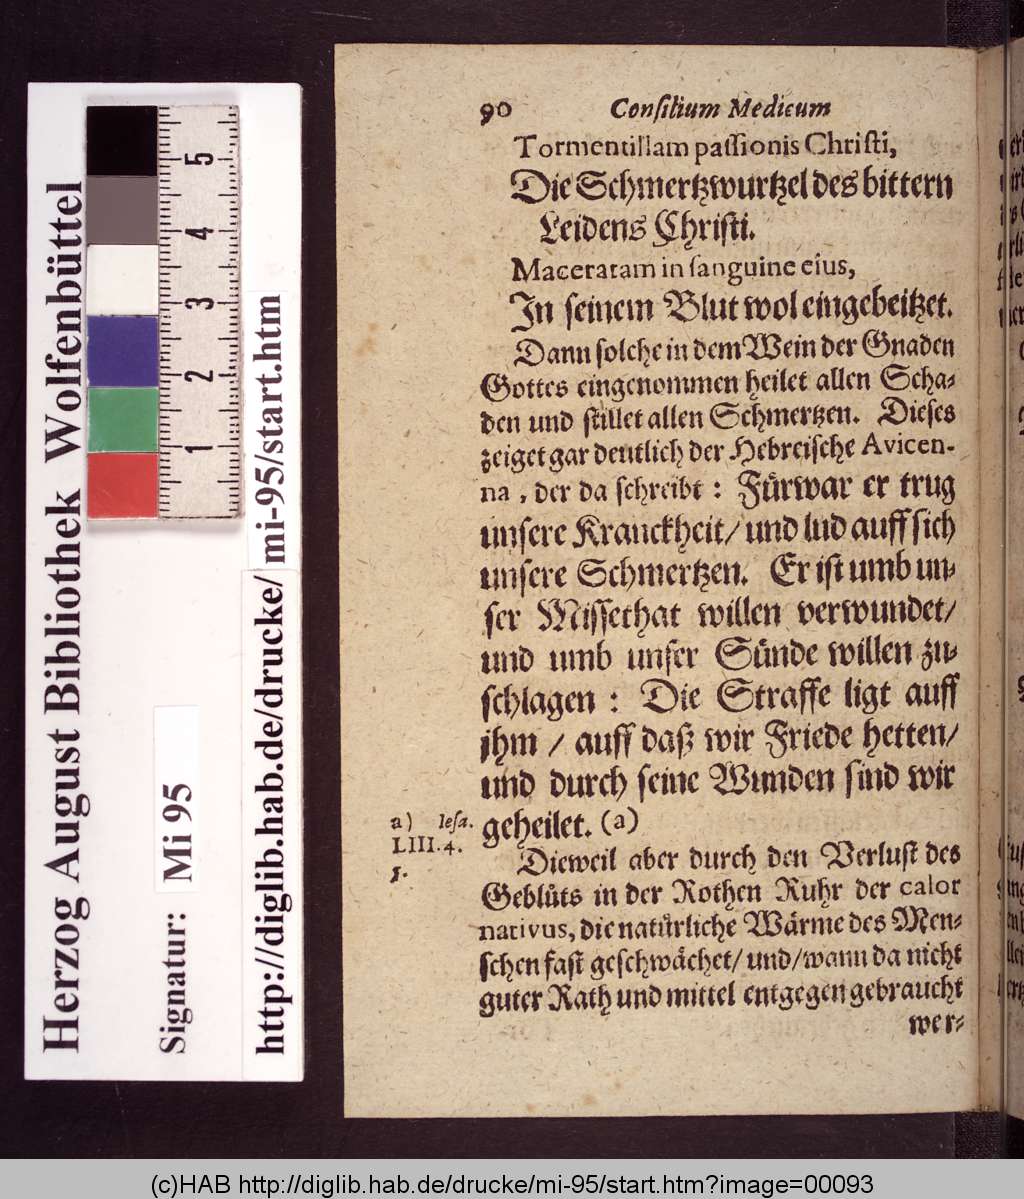 90 Consilium Medicum
Tormentillam passionis Christi,
Die Schmertzwurtzel des bittern
Leidens Christi.
Maceratam in sanguine eius,
In seinem Blut wol eingebeitzet.
Dann solche in dem Wein der Gnaden
Gottes eingenommen heilet allen Scha-
den und stillet allen Schmertzen. Dieses
zeiget gar deutlich der Hebreische Avicen-
na, der da schreibt: Fürwar er trug
unsere Kranckheit/ und lud auff sich
unsere Schmertzen. Er ist umb un-
ser Missethat willen verwundet/
und umb unser Sünde willen zu-
schlagen: Die Straffe ligt auff
jhm / auff daß wir Friede hetten/
und durch seine Wunden sind wir
geheilet. (a)
a) Iesa.
LIII. 4.
5.
Dieweil aber durch den Verlust des
Geblüts in der Rothen Ruhr der calor
nativus, die natürliche Wärme des Men-
schen fast geschwächet/ und/ wann da nicht
guter Rath und mittel entgegen gebraucht
wer-
Herzog August Bibliothek Wolfenbüttel
Signatur: Mi 95
http://diglib.hab.de/drucke/ mi-95/start.htm
5
4
3
2
1
(c)HAB http://diglib.hab.de/drucke/mi-95/start.htm?image=00093